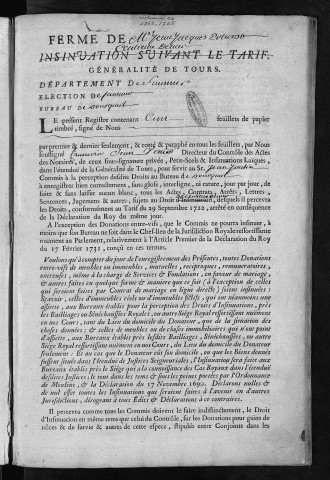 FERME DE Mre Jean Jacques
INSINUATION SUIVANT LE TARIF.
GÉNÉRALITÉ DE TOURS.
DÉPARTEMENT De Saumur
ELECTION de Saumur
BUREAU de
LE présent Registre contenant Cent feuillets de papier
timbré, signé de Nous
par premier & dernier seulement, & cotté & paraphé en tous les feuillets, par Nous
soussigné Directeur du Contrôle des Actes
des Notaires, de ceux sous-signature privée, Petit-Scels & Insinuations Laïques,
dans l'étendue de la Généralité de Tours, pour servir au Sr.
Commis à la perception desdits Droits au Bureau de
à enregistrer bien correctement, sans glose, interligne, ni rature, jour par jour, de
suite & sans laisser aucun blanc, tous les Actes, Contrats, Arrêts, Lettres,
Sentences, Jugemens & autres, sujets au Droit d'Insinuation, desquels il percevra
les Droits, conformément au Tarif du 29 Septembre 1722, arrêté en conséquence
de la Déclaration du Roy du même jour.
A l'exception des Donations entre-vifs, que le Commis ne pourra insinuer, à
moins que son Bureau ne soit dans le Chef-lieu de la Jurisdiction Royale ressortissante
nuement au Parlement, relativement à l'Article Premier de la Déclaration du Roy
du 17 Février 1731, conçû en ces termes.
Voulons qu'à compter du jour de l'enregistrement des Présentes, toutes Donations
entre-vifs de meubles ou immeubles, mutuelles, réciproques, rémunératoires,
onéreuses, même à la charge de Services & Fondations, en faveur de mariage,
& autres faites en quelque forme & maniere que ce soit (à l'exception de celles
qui seroient faites par Contrat de mariage en ligne directe) soient insinuées;
Sçavoir, celles d'immeubles réels ou d'immeubles fictifs, qui ont néanmoins une
assiette, aux Bureaux établis pour la perception des Droits d'Insinuation, près
les Bailliages ou Sénéchaussées Royales, ou autre Siège Royal ressortissant nuement
en nos Cours, tant du Lieu du Domicile du Donateur, que de la situation des
choses données; & celles de meubles ou de choses immobiliaires qui n'ont point
d'assiette, aux Bureaux établis près lesdits Bailliages, Sénéchaussées, ou autre
Siège Royal ressortissant nuement en nos Cours, du Lieu du domicile du Donateur
seulement: Et au cas que le Donateur eût son domicile, ou que les Biens donnés
fussent situés dans l'étendue de Justices Seigneuriales, l'Insinuation sera faite aux
Bureaux établis près le Siège qui a la connoissance des Cas Royaux dans l'étendue
desdites Justices; le tout dans les tems & sous les peines portées par l'Ordonnance
de Moulins, & la Déclaration du 17 Novembre 1690. Déclarons nulles &
de nul effet toutes les Insinuations qui seroient faites à l'avenir en d'autres
Jurisdictions, dérogeant à tous Edits & Déclarations à ce contraires.
Il percevra comme tous les Commis doivent le faire indistinctement, le Droit
d'Insinuation en même tems que celui du Contrôle, sur les Donations pour gains de
nôces & de survie & autres de cette espece, stipulés entre Conjoints dans les